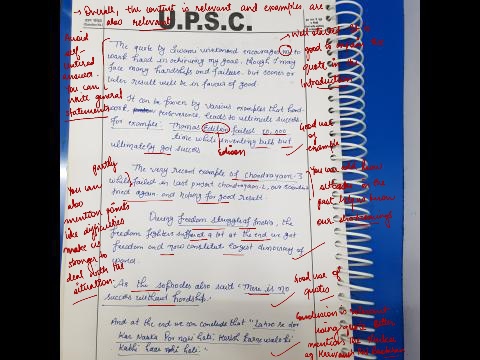 → Overall, the content is relevant and examples are
also relevant
U.P.S.C.
Avoid
self-
centred
answer.
You can
write general
statements
Well started. It is
good to explain the
quote in the
Introduction
The quote by Swami vivekanand encourages me to
work hard in achieving my goal, though I may
face many hardships and failures. but sooner or
later result will be in favour of good.
It can be proven by various examples that hard-
work, perseverance, leads to ultimate success.
for example: Thomas Edison failed 10,000
time while inventing bulb but
ultimately got success
Edison
Good use
of
example
The very recent example of Chandrayan-3
while failed in last project chandrayan-2, our scientists
tried again and hoping for good result.
partly
You can
also
mention points
like difficulties
make us
stronger to
deal with the
situation
You can
in the
past help us know
our shortcomings
During freedom struggle of India, the
freedom fighters suffered a lot at the end we got
freedom and now constitute largest democracy of
world.
As the sofboodes also said "There is no
success without hardship.
Good use of
quotes
And at the end we can conclude that "Larno se dar
Kar Nauka Par nahi hoti, Koshish karne walo ki
Kabhi haar nahi hoti."
Conclusion is
using quote
mention